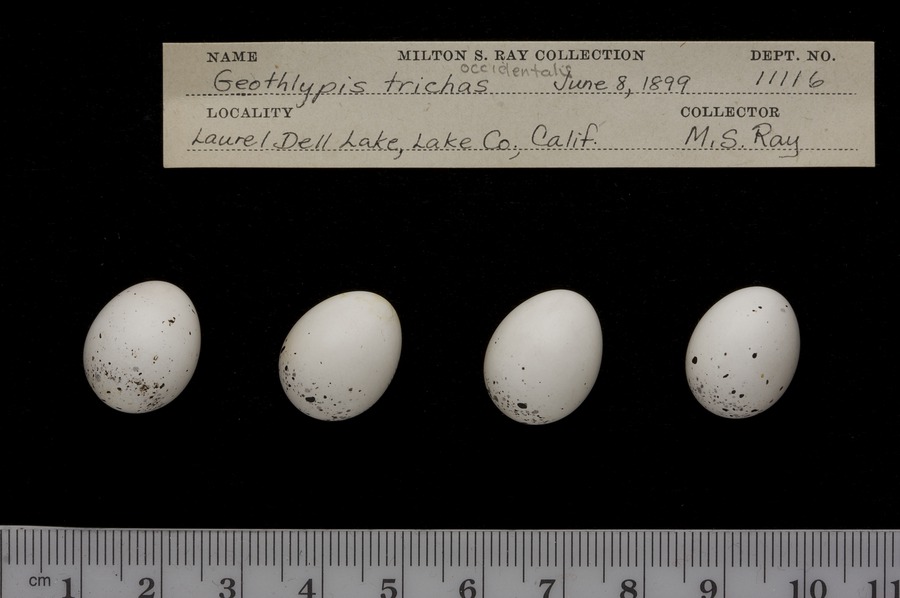 NAME MILTON S. RAY COLLECTION DEPT. NO.
occidentalis
Geothlypis trichas June 8, 1899 11116
LOCALITY COLLECTOR
Laurel Dell Lake, Lake Co., Calif. M. S. Ray
cm 1 2 3 4 5 6 7 8 9 10 11